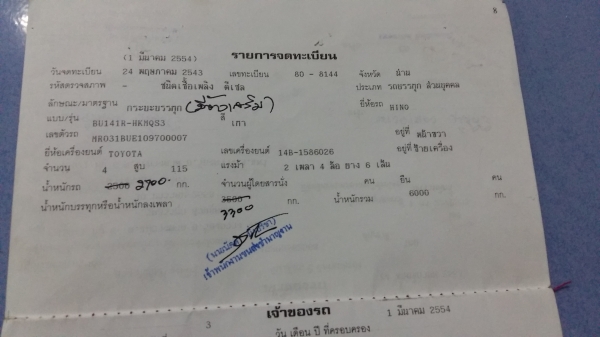 8
(1 มีนาคม 2554) รายการจดทะเบียน
วันจดทะเบียน 24 พฤษภาคม 2543 เลขทะเบียน 80 - 8144 จังหวัด น่าน
รหัสตรวจสภาพ - ชนิดเชื้อเพลิง ดีเซล ประเภท รถบรรทุก ส่วนบุคคล
ลักษณะ/มาตรฐาน กระบะบรรทุก ยี่ห้อรถ HINO
แบบ/รุ่น BU141R-HKMQS3 สี เทา
เลขตัวรถ MR031BUE109700007 อยู่ที่ หน้าขวา
ยี่ห้อเครื่องยนต์ TOYOTA เลขเครื่องยนต์ 14B-1586026 อยู่ที่ ซ้ายเครื่อง
จำนวน 4 สูบ 115 แรงม้า 2 เพลา 4 ล้อ ยาง 6 เส้น
น้ำหนักรถ 2500 2700 กก. จำนวนผู้โดยสารนั่ง คน ยืน คน
น้ำหนักบรรทุกหรือน้ำหนักลงเพลา 3500 กก. น้ำหนักรวม 6000 กก.
3300
เจ้าพนักงานขนส่งชำนาญงาน
เจ้าของรถ
3 1 มีนาคม 2554
วัน เดือน ปี ที่ครอบครอง